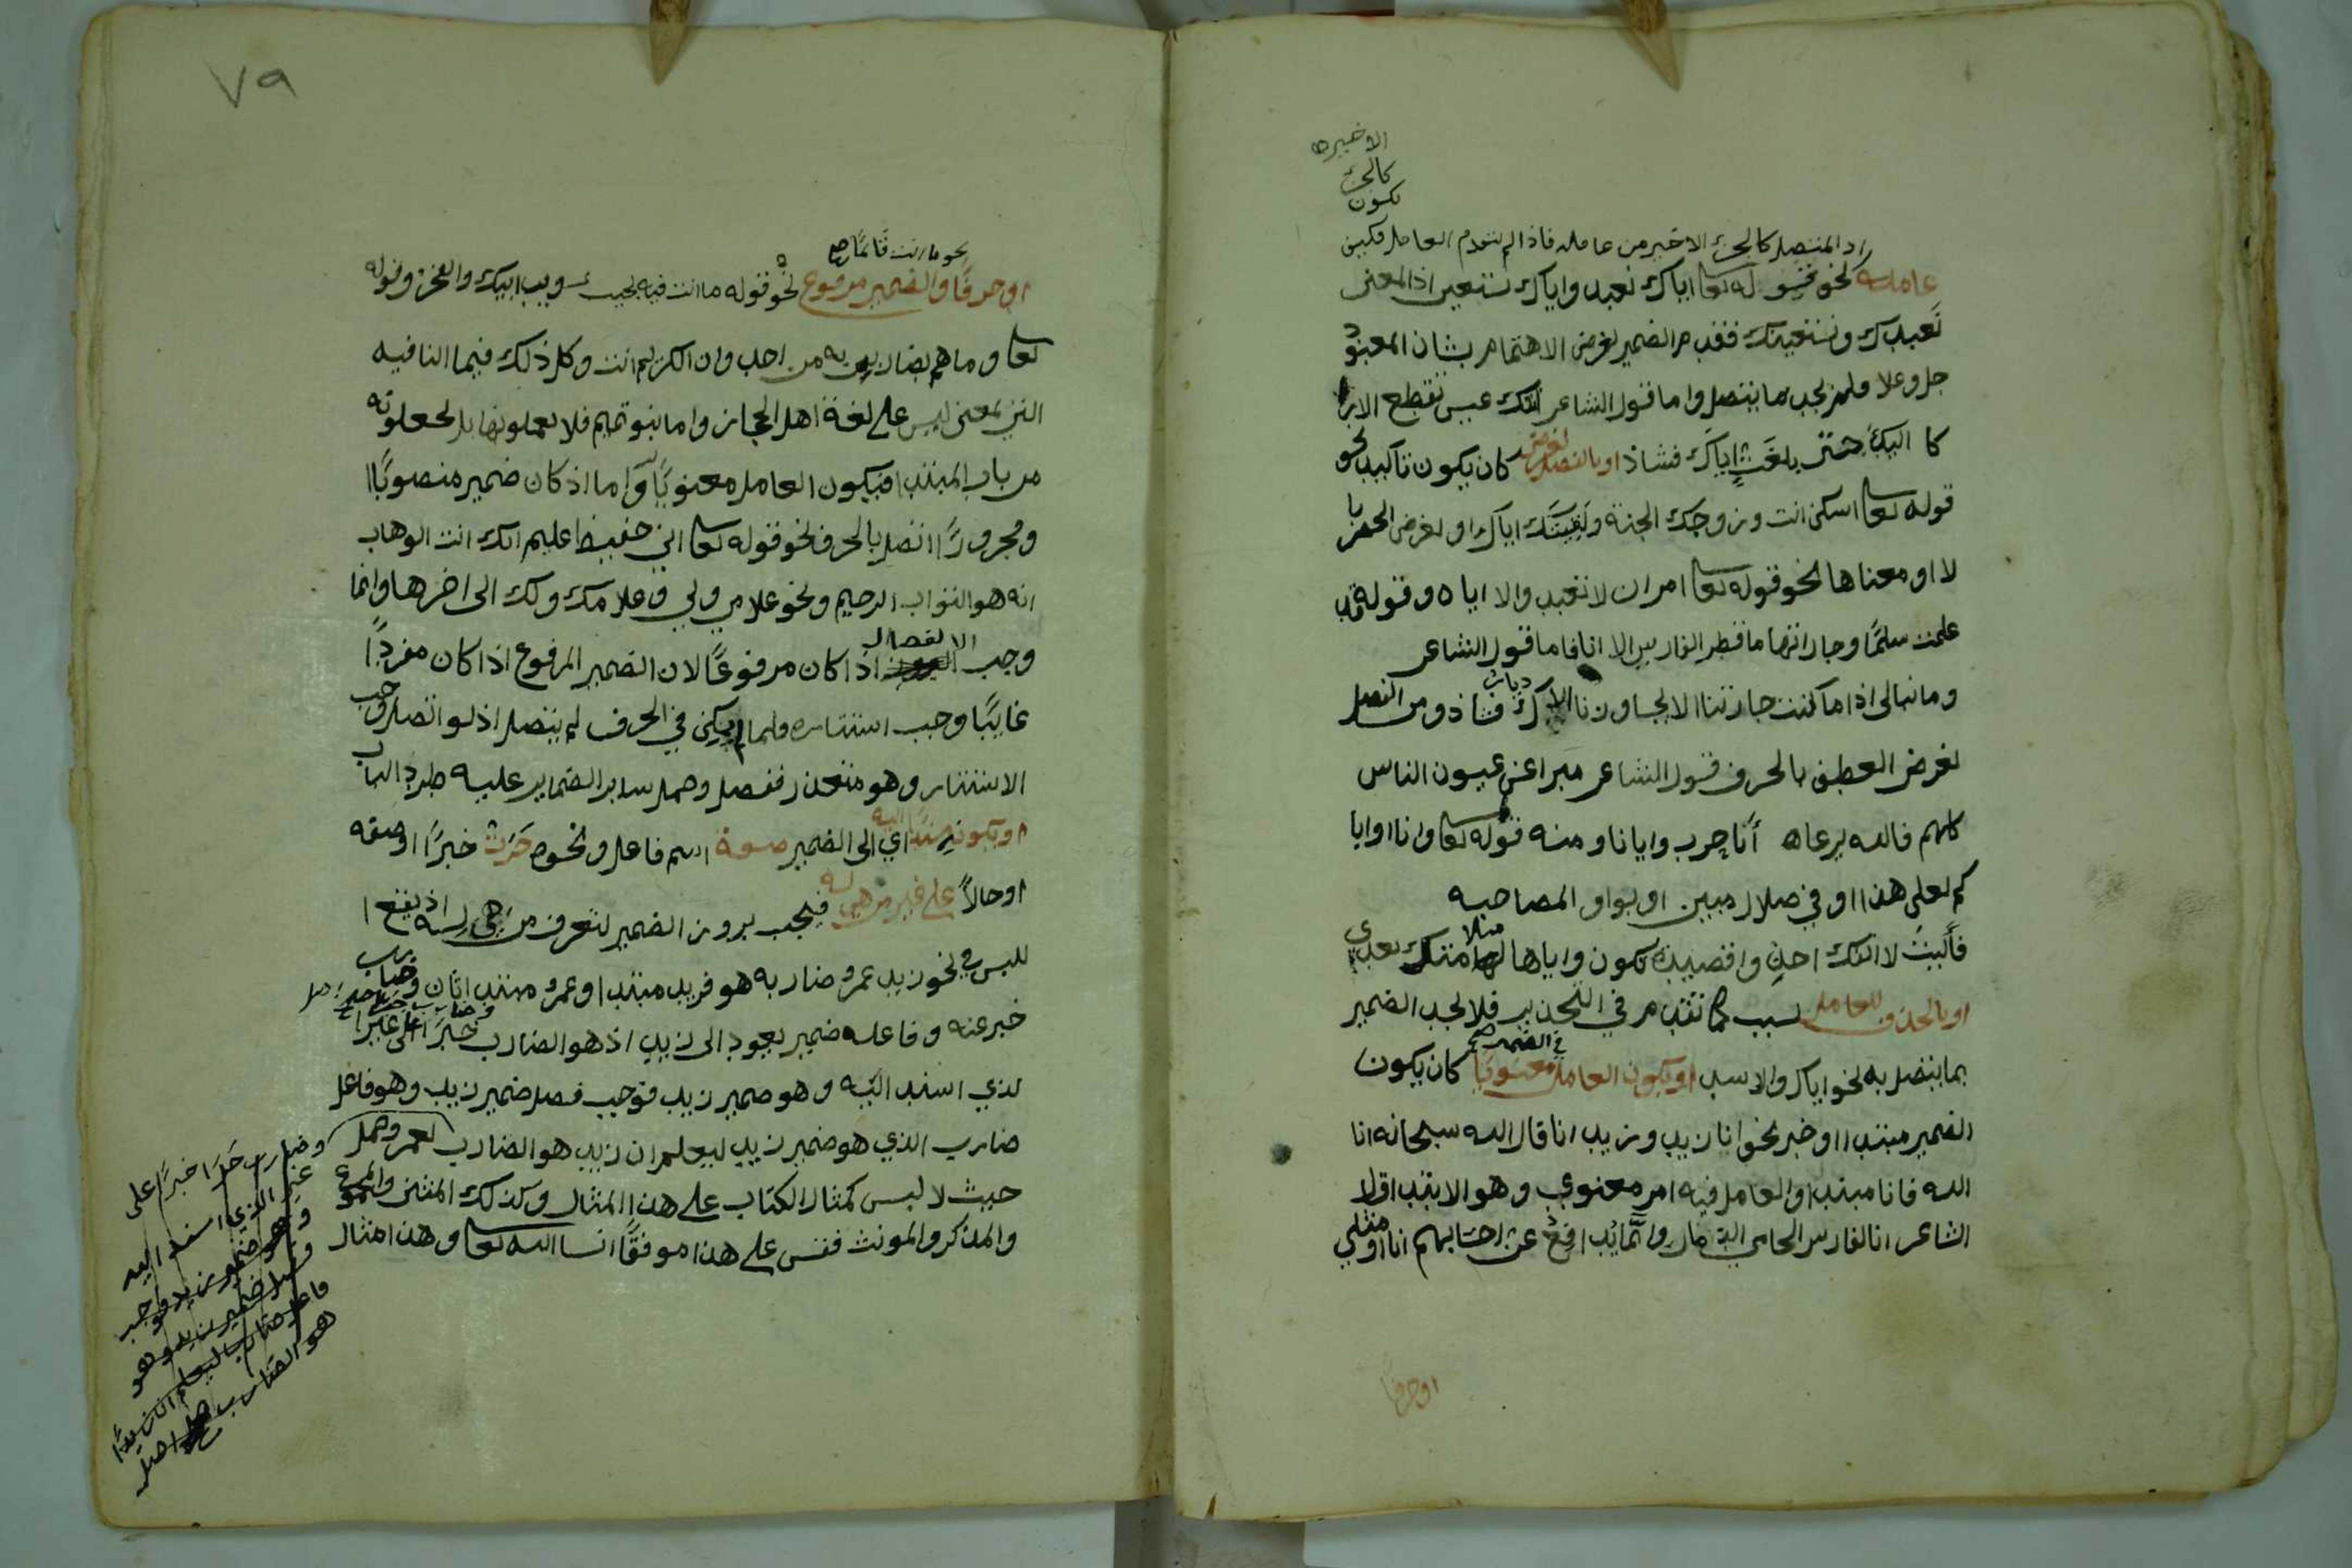 الاخير ص
كالجزء
تكون
اذ المتصل كالجزء الاخير من عامله فاذا لم يتقدم العامل فكيف
عامله نحو قوله تعا اياك نعبد واياك نستعين اذ المعنى
نعبدك ونستعينك فقدم الضمير لغرض الاهتمام بشان المعبود
جل وعلا فلم يجب ما يتصل واما قول الشاعر اتتك عيس تقطع الارا
كا اليك حتى بلغت اياك فشاذ او بالفصل لغرض كان يكون تاكيد نحو
قوله تعا اسكن انت وزوجك الجنة ولقيتك اياك او لغرض الحصر با
لا او معناها نحو قوله تعا امر ان لا تعبدوا الا اياه وقوله قد
علمت سلمى وجاراتها ما قطر الفارس الا انا فاما قول الشاعر
وما نبالي اذا ما كنت جارتنا الا يجاورنا الاك ديار فشاذ ومن الفصل
لغرض العطف بالحرف قول الشاعر مبرا عن عيون الناس
كلهم فالله يرعاه أنا حرب وايانا ومنه قوله تعا وانا او ايا
كم لعلى هدى او في ضلال مبين او بواو المصاحبه
فأليت لا انفك احذو قصيدة تكون واياها لها مثلا بعدي
او بالحذف للعامل بسبب كما تقدم في التحذير فلا يجب الضمير
بما يتصل به نحو اياك والاسد او يكون العامل في الضمير معنويا كان يكون
الضمير مبتدا او خبر نحو انا زيد وزيد انا قال الله سبحانه انا
الله فانا مبتدا والعامل فيه امر معنوي وهو الابتدا قال
الشاعر انا الفارس الحامي الذمار وانما يدافع عن احسابهم انا او مثلي
او حرفا
٧٩
نحو ما انت قائما صح
او حرفا والضمير مرفوع نحو قوله ما انت فيه لجيب ويب ابيك والفخر وقوله
تعا وما هم بضارين به من احد وان الكريم انت وكل ذلك فيما النافيه
التي بمعنى ليس على لغة اهل الحجاز واما بنو تميم فلا يعملونها بل يجعلونه
من باب المبتدا فيكون العامل معنويا واما اذ كان ضمير منصوبا ا
ومجرورا اتصل بالحرف نحو قوله تعا اني حفيظ عليم انك انت الوهاب
انه هو التواب الرحيم ونحو غلامي ولي وغلامك ولك الى اخرها وانما
وجب الانفصال اذا كان مرفوعا لان الضمير المرفوع اذا كان مفردا
غايبا وجب استتاره ولما لم يمكن في الحرف لم يتصل اذ لو اتصل وجب
الاستتار وهو متعذر ففصل وحمل ساير الضماير عليه طردا للباب
او بكونه مسندا اليه اي الى الضمير صفة اسم فاعل ونحوه جرت خبرا او صفه
او حالا على غير من هي له فيجب بروز الضمير لتعرف من هي له اذ يقع ا
للبس في نحو زيد عمرو ضاربه هو فزيد مبتدا وعمرو مبتدا ثان وضارب
خبر عنه وفاعله ضمير يعود الى زيد اذ هو الضارب خبرا على غير ا
لذي اسند اليه وهو ضمير زيد فوجب فصل ضمير زيد وهو فاعل
ضارب الذي هو ضمير زيد ليعلم ان زيد هو الضارب لعمرو وحمل
حيث لا لبس كمثال الكتاب على هذا المثال وكذلك المثنى والمجموع
والمذكر والمونث فقس على هذا موفقا انشا الله تعا وهذا مثال
وضارب جرا خبرا على
غير الذي اسند اليه
وهو ضمير زيد فوجب
فصل ضمير زيد وهو
فاعل ضارب ليعلم ان زيدا
هو الضارب